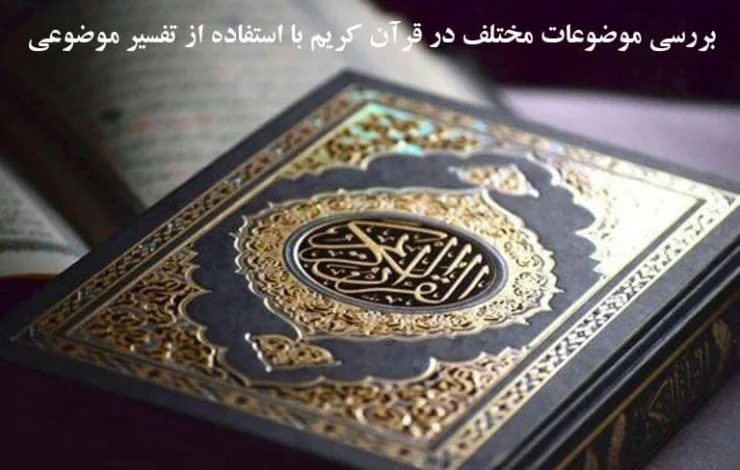 بررسی موضوعات مختلف در قرآن کریم با استفاده از تفسیر موضوعی
القرآن الكريم